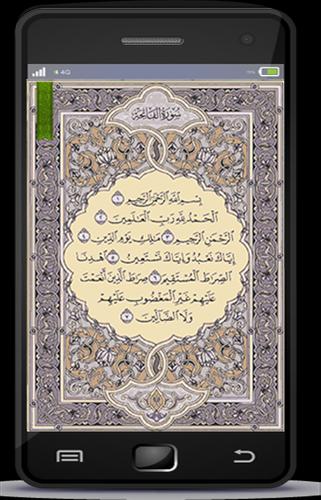 4G
سُورَةُ الفَاتِحَةِ
بِسْمِ ٱللَّهِ ٱلرَّحْمَٰنِ ٱلرَّحِيمِ ١
ٱلْحَمْدُ لِلَّهِ رَبِّ ٱلْعَٰلَمِينَ ٢
ٱلرَّحْمَٰنِ ٱلرَّحِيمِ ٣ مَٰلِكِ يَوْمِ ٱلدِّينِ ٤
إِيَّاكَ نَعْبُدُ وَإِيَّاكَ نَسْتَعِينُ ٥ ٱهْدِنَا
ٱلصِّرَٰطَ ٱلْمُسْتَقِيمَ ٦ صِرَٰطَ ٱلَّذِينَ أَنْعَمْتَ
عَلَيْهِمْ غَيْرِ ٱلْمَغْضُوبِ عَلَيْهِمْ
وَلَا ٱلضَّآلِّينَ ٧